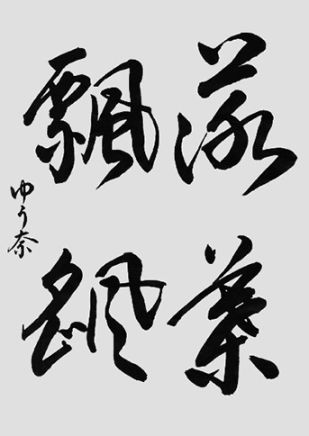 落葉
飄颻
ゆう奈